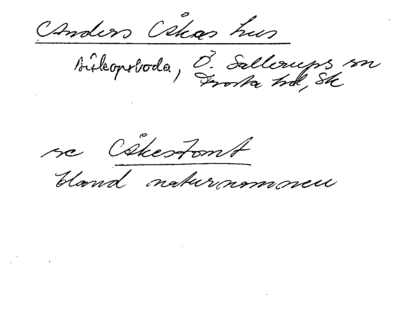 Anders Åkes hus
Biskopsboda, Ö. Sallerups sn
Frosta hd, Sk
se Åkestomt
bland naturnamnen